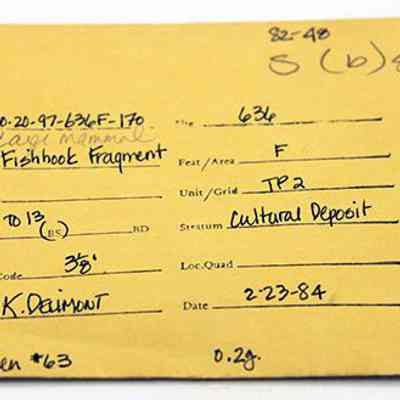 82-48
S (b)
0-20-97-636F-170 636
Large Mammal
Fishhook Fragment Feat/Area F
Unit/Grid TP2
TO 13 (BS) BD Stratum Cultural Deposit
Code 3 1/8" Loc.Quad
K. DELIMONT Date 2-23-84
#63 0.2g.